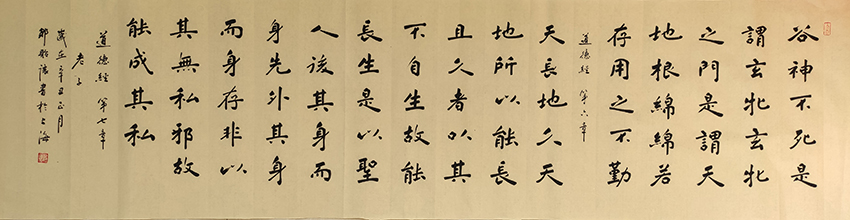 谷神不死是
謂玄牝玄牝
之門是謂天
地根綿綿若
存用之不勤
道德經 第六章
天長地久天
地所以能長
且久者以其
不自生故能
長生是以聖
人後其身而
身先外其身
而身存非以
其無私邪故
能成其私
道德經 第七章
老子
歲在辛丑正月
書於上海